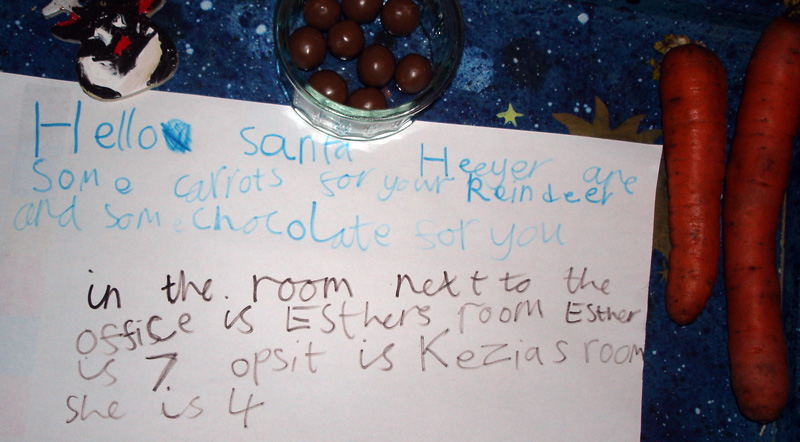 Hello santa Heeyer are
some carrots for your Reindeer
and some chocolate for you
in the room next to the
office is Esthers room Esther
is 7. opsit is Kezias room
she is 4